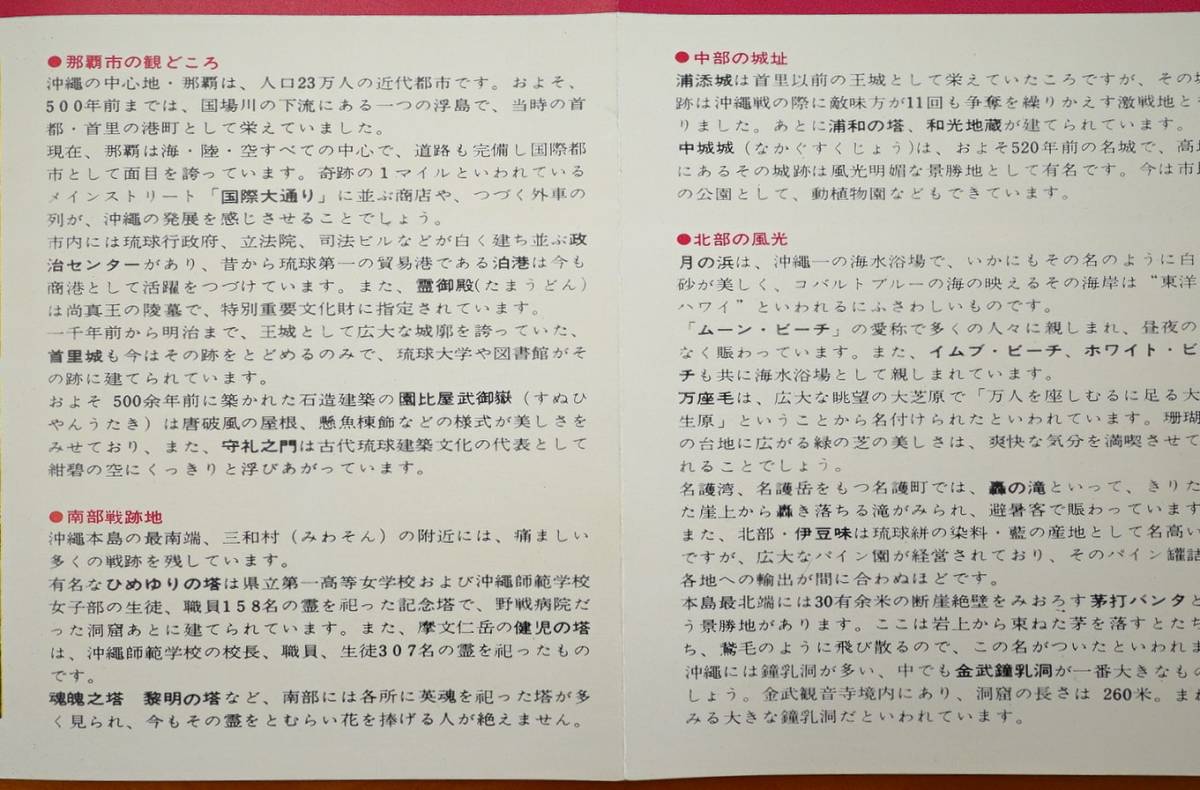 ●那覇市の観どころ
沖縄の中心地・那覇は、人口23万人の近代都市です。およそ、
500年前までは、国場川の下流にある一つの浮島で、当時の首
都・首里の港町として栄えていました。
現在、那覇は海・陸・空すべての中心で、道路も完備し国際都
市として面目を誇っています。奇跡の1マイルといわれている
メインストリート「国際大通り」に並ぶ商店や、つづく外車の
列が、沖縄の発展を感じさせることでしょう。
市内には琉球行政府、立法院、司法ビルなどが白く建ち並ぶ政
治センターがあり、昔から琉球第一の貿易港である泊港は今も
商港として活躍をつづけています。また、靈御殿(たまうどん)
は尚真王の陵墓で、特別重要文化財に指定されています。
一千年前から明治まで、王城として広大な城廓を誇っていた、
首里城も今はその跡をとどめるのみで、琉球大学や図書館がそ
の跡に建てられています。
およそ 500余年前に築かれた石造建築の園比屋武御嶽(すぬひ
やんうたき)は唐破風の屋根、懸魚棟飾などの様式が美しさを
みせており、また、守礼之門は古代琉球建築文化の代表として
紺碧の空にくっきりと浮びあがっています。
●南部戦跡地
沖縄本島の最南端、三和村(みわそん)の附近には、痛ましい
多くの戦跡を残しています。
有名なひめゆりの塔は県立第一高等女学校および沖縄師範学校
女子部の生徒、職員158名の霊を祀った記念塔で、野戦病院だ
った洞窟あとに建てられています。また、摩文仁岳の健児の塔
は、沖縄師範学校の校長、職員、生徒307名の霊を祀ったもの
です。
魂魄之塔 黎明の塔など、南部には各所に英魂を祀った塔が多
く見られ、今もその霊をとむらい花を捧げる人が絶えません。
●中部の城址
浦添城は首里以前の王城として栄えていたころですが、その城
跡は沖縄戦の際に敵味方が11回も争奪を繰りかえす激戦地と
りました。あとに浦和の塔、和光地蔵が建てられています。
中城城(なかぐすくじょう)は、およそ520年前の名城で、高
にあるその城跡は風光明媚な景勝地として有名です。今は市
の公園として、動植物園などもできています。
●北部の風光
月の浜は、沖縄一の海水浴場で、いかにもその名のように白
砂が美しく、コバルトブルーの海の映えるその海岸は“東洋
ハワイ”といわれるにふさわしいものです。
「ムーン・ビーチ」の愛称で多くの人々に親しまれ、昼夜の
なく賑わっています。また、イムブ・ビーチ、ホワイト・ビ
チも共に海水浴場として親しまれています。
万座毛は、広大な眺望の大芝原で「万人を座しむるに足る大
生原」ということから名付けられたといわれています。珊瑚
の台地に広がる緑の芝の美しさは、爽快な気分を満喫させて
れることでしょう。
名護湾、名護岳をもつ名護町では、轟の滝といって、きりた
た崖上から轟き落ちる滝がみられ、避暑客で賑わっています
また、北部・伊豆味は琉球絣の染料・藍の産地として名高い
ですが、広大なパイン園が経営されており、そのパイン罐詰
各地への輸出が間に合わぬほどです。
本島最北端には30有余米の断崖絶壁をみおろす茅打バンタと
う景勝地があります。ここは岩上から束ねた茅を落すとたち
ち、鵞毛のように飛び散るので、この名がついたといわれま
沖縄には鐘乳洞が多い、中でも金武鐘乳洞が一番大きなもの
しょう。金武観音寺境内にあり、洞窟の長さは 260米。まれ
みる大きな鐘乳洞だといわれています。